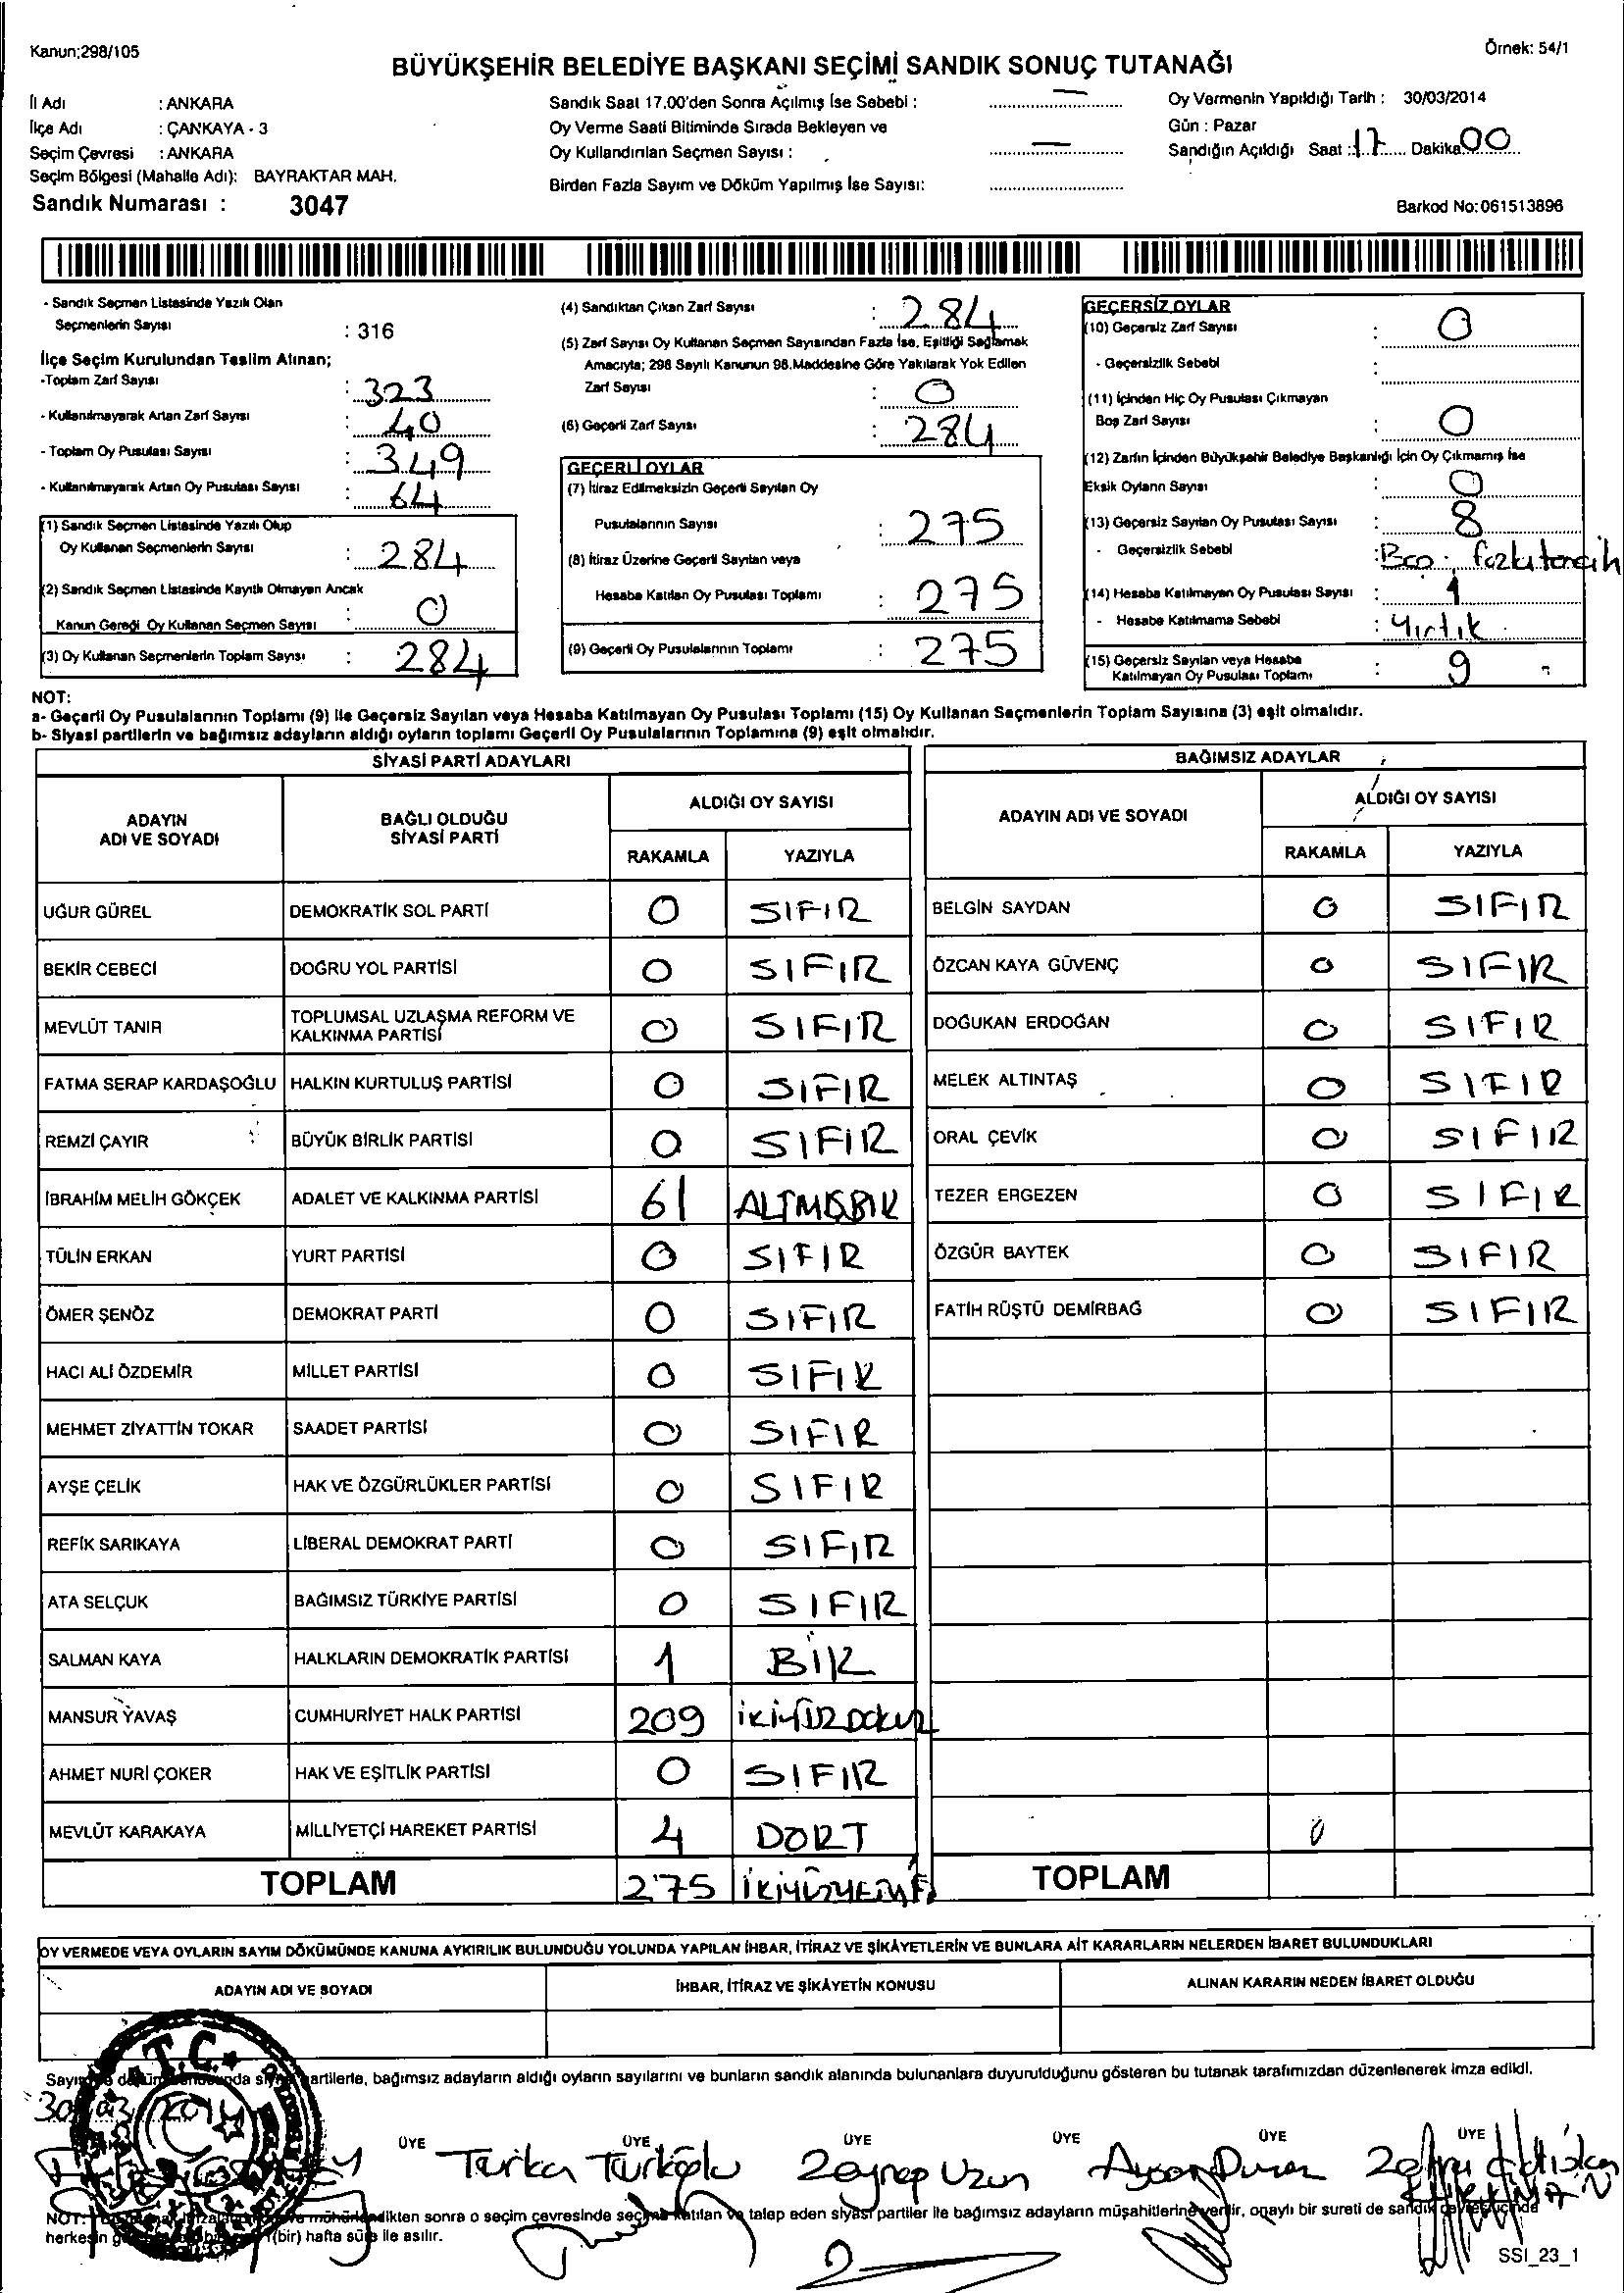 Kanun;298/105
Örnek: 54/1
BÜYÜKŞEHİR BELEDİYE BAŞKANI SEÇİMİ SANDIK SONUÇ TUTANAĞI
İl Adı : ANKARA
İlçe Adı : ÇANKAYA - 3
Seçim Çevresi : ANKARA
Seçim Bölgesi (Mahalle Adı): BAYRAKTAR MAH.
Sandık Numarası : 3047
Sandık Saat 17.00'den Sonra Açılmış İse Sebebi : —
Oy Verme Saati Bitiminde Sırada Bekleyen ve
Oy Kullandırılan Seçmen Sayısı : —
Birden Fazla Sayım ve Döküm Yapılmış İse Sayısı:
Oy Vermenin Yapıldığı Tarih : 30/03/2014
Gün : Pazar
Sandığın Açıldığı Saat : 17 Dakika 00
Barkod No:061513896
- Sandık Seçmen Listesinde Yazılı Olan
Seçmenlerin Sayısı : 316
İlçe Seçim Kurulundan Teslim Alınan;
-Toplam Zarf Sayısı : 323
- Kullanılmayarak Artan Zarf Sayısı : 40
- Toplam Oy Pusulası Sayısı : 349
- Kullanılmayarak Artan Oy Pusulası Sayısı : 64
(1) Sandık Seçmen Listesinde Yazılı Olup
Oy Kullanan Seçmenlerin Sayısı : 284
(2) Sandık Seçmen Listesinde Kayıtlı Olmayan Ancak
Kanun Gereği Oy Kullanan Seçmen Sayısı : 0
(3) Oy Kullanan Seçmenlerin Toplam Sayısı : 284
(4) Sandıktan Çıkan Zarf Sayısı : 284
(5) Zarf Sayısı Oy Kullanan Seçmen Sayısından Fazla İse, Eşitliği Sağlamak
Amacıyla; 298 Sayılı Kanunun 98.Maddesine Göre Yakılarak Yok Edilen
Zarf Sayısı : 0
(6) Geçerli Zarf Sayısı : 284
GEÇERLİ OYLAR
(7) İtiraz Edilmeksizin Geçerli Sayılan Oy
Pusulalarının Sayısı : 275
(8) İtiraz Üzerine Geçerli Sayılan veya
Hesaba Katılan Oy Pusulası Toplamı : 275
(9) Geçerli Oy Pusulalarının Toplamı : 275
GEÇERSİZ OYLAR
(10) Geçersiz Zarf Sayısı : 0
- Geçersizlik Sebebi :
(11) İçinden Hiç Oy Pusulası Çıkmayan
Boş Zarf Sayısı : 0
(12) Zarfın İçinden Büyükşehir Belediye Başkanlığı İçin Oy Çıkmamış İse
Eksik Oyların Sayısı : 0
(13) Geçersiz Sayılan Oy Pusulası Sayısı : 8
- Geçersizlik Sebebi : fazla tercih
(14) Hesaba Katılmayan Oy Pusulası Sayısı : 1
- Hesaba Katılmama Sebebi : Yırtık
(15) Geçersiz Sayılan veya Hesaba
Katılmayan Oy Pusulası Toplamı : 9
NOT:
a- Geçerli Oy Pusulalarının Toplamı (9) ile Geçersiz Sayılan veya Hesaba Katılmayan Oy Pusulası Toplamı (15) Oy Kullanan Seçmenlerin Toplam Sayısına (3) eşit olmalıdır.
b- Siyasi partilerin ve bağımsız adayların aldığı oyların toplamı Geçerli Oy Pusulalarının Toplamına (9) eşit olmalıdır.
SİYASİ PARTİ ADAYLARI
ADAYIN ADI VE SOYADI BAĞLI OLDUĞU SİYASİ PARTİ ALDIĞI OY SAYISI
RAKAMLA YAZIYLA
UĞUR GÜREL DEMOKRATİK SOL PARTİ 0 SIFIR
BEKİR CEBECİ DOĞRU YOL PARTİSİ 0 SIFIR
MEVLÜT TANIR TOPLUMSAL UZLAŞMA REFORM VE KALKINMA PARTİSİ 0 SIFIR
FATMA SERAP KARDAŞOĞLU HALKIN KURTULUŞ PARTİSİ 0 SIFIR
REMZİ ÇAYIR BÜYÜK BİRLİK PARTİSİ 0 SIFIR
İBRAHİM MELİH GÖKÇEK ADALET VE KALKINMA PARTİSİ 61 ALTMIŞBİR
TÜLİN ERKAN YURT PARTİSİ 0 SIFIR
ÖMER ŞENÖZ DEMOKRAT PARTİ 0 SIFIR
HACI ALİ ÖZDEMİR MİLLET PARTİSİ 0 SIFIR
MEHMET ZİYATTİN TOKAR SAADET PARTİSİ 0 SIFIR
AYŞE ÇELİK HAK VE ÖZGÜRLÜKLER PARTİSİ 0 SIFIR
REFİK SARIKAYA LİBERAL DEMOKRAT PARTİ 0 SIFIR
ATA SELÇUK BAĞIMSIZ TÜRKİYE PARTİSİ 0 SIFIR
SALMAN KAYA HALKLARIN DEMOKRATİK PARTİSİ 1 BİR
MANSUR YAVAŞ CUMHURİYET HALK PARTİSİ 209 İKİYÜZDOKUZ
AHMET NURİ ÇOKER HAK VE EŞİTLİK PARTİSİ 0 SIFIR
MEVLÜT KARAKAYA MİLLİYETÇİ HAREKET PARTİSİ 4 DORT
TOPLAM 275
BAĞIMSIZ ADAYLAR
ADAYIN ADI VE SOYADI ALDIĞI OY SAYISI
RAKAMLA YAZIYLA
BELGİN SAYDAN 0 SIFIR
ÖZCAN KAYA GÜVENÇ 0 SIFIR
DOĞUKAN ERDOĞAN 0 SIFIR
MELEK ALTINTAŞ 0 SIFIR
ORAL ÇEVİK 0 SIFIR
TEZER ERGEZEN 0 SIFIR
ÖZGÜR BAYTEK 0 SIFIR
FATİH RÜŞTÜ DEMİRBAĞ 0 SIFIR
0
TOPLAM
OY VERMEDE VEYA OYLARIN SAYIM DÖKÜMÜNDE KANUNA AYKIRILIK BULUNDUĞU YOLUNDA YAPILAN İHBAR, İTİRAZ VE ŞİKÂYETLERİN VE BUNLARA AİT KARARLARIN NELERDEN İBARET BULUNDUKLARI
ADAYIN ADI VE SOYADI İHBAR, İTİRAZ VE ŞİKÂYETİN KONUSU ALINAN KARARIN NEDEN İBARET OLDUĞU
T.C.
partilerle, bağımsız adayların aldığı oyların sayılarını ve bunların sandık alanında bulunanlara duyurulduğunu gösteren bu tutanak tarafımızdan düzenlenerek imza edildi.
ÜYE ÜYE ÜYE ÜYE ÜYE ÜYE
Türkoğlu Zeynep Uzun
NOT: sonra o seçim çevresinde seçime katılan ve talep eden siyasi partiler ile bağımsız adayların müşahitlerine verilir, onaylı bir sureti de sandık çevresi içinde
herkesin (bir) hafta süre ile asılır.
SSI_23_1